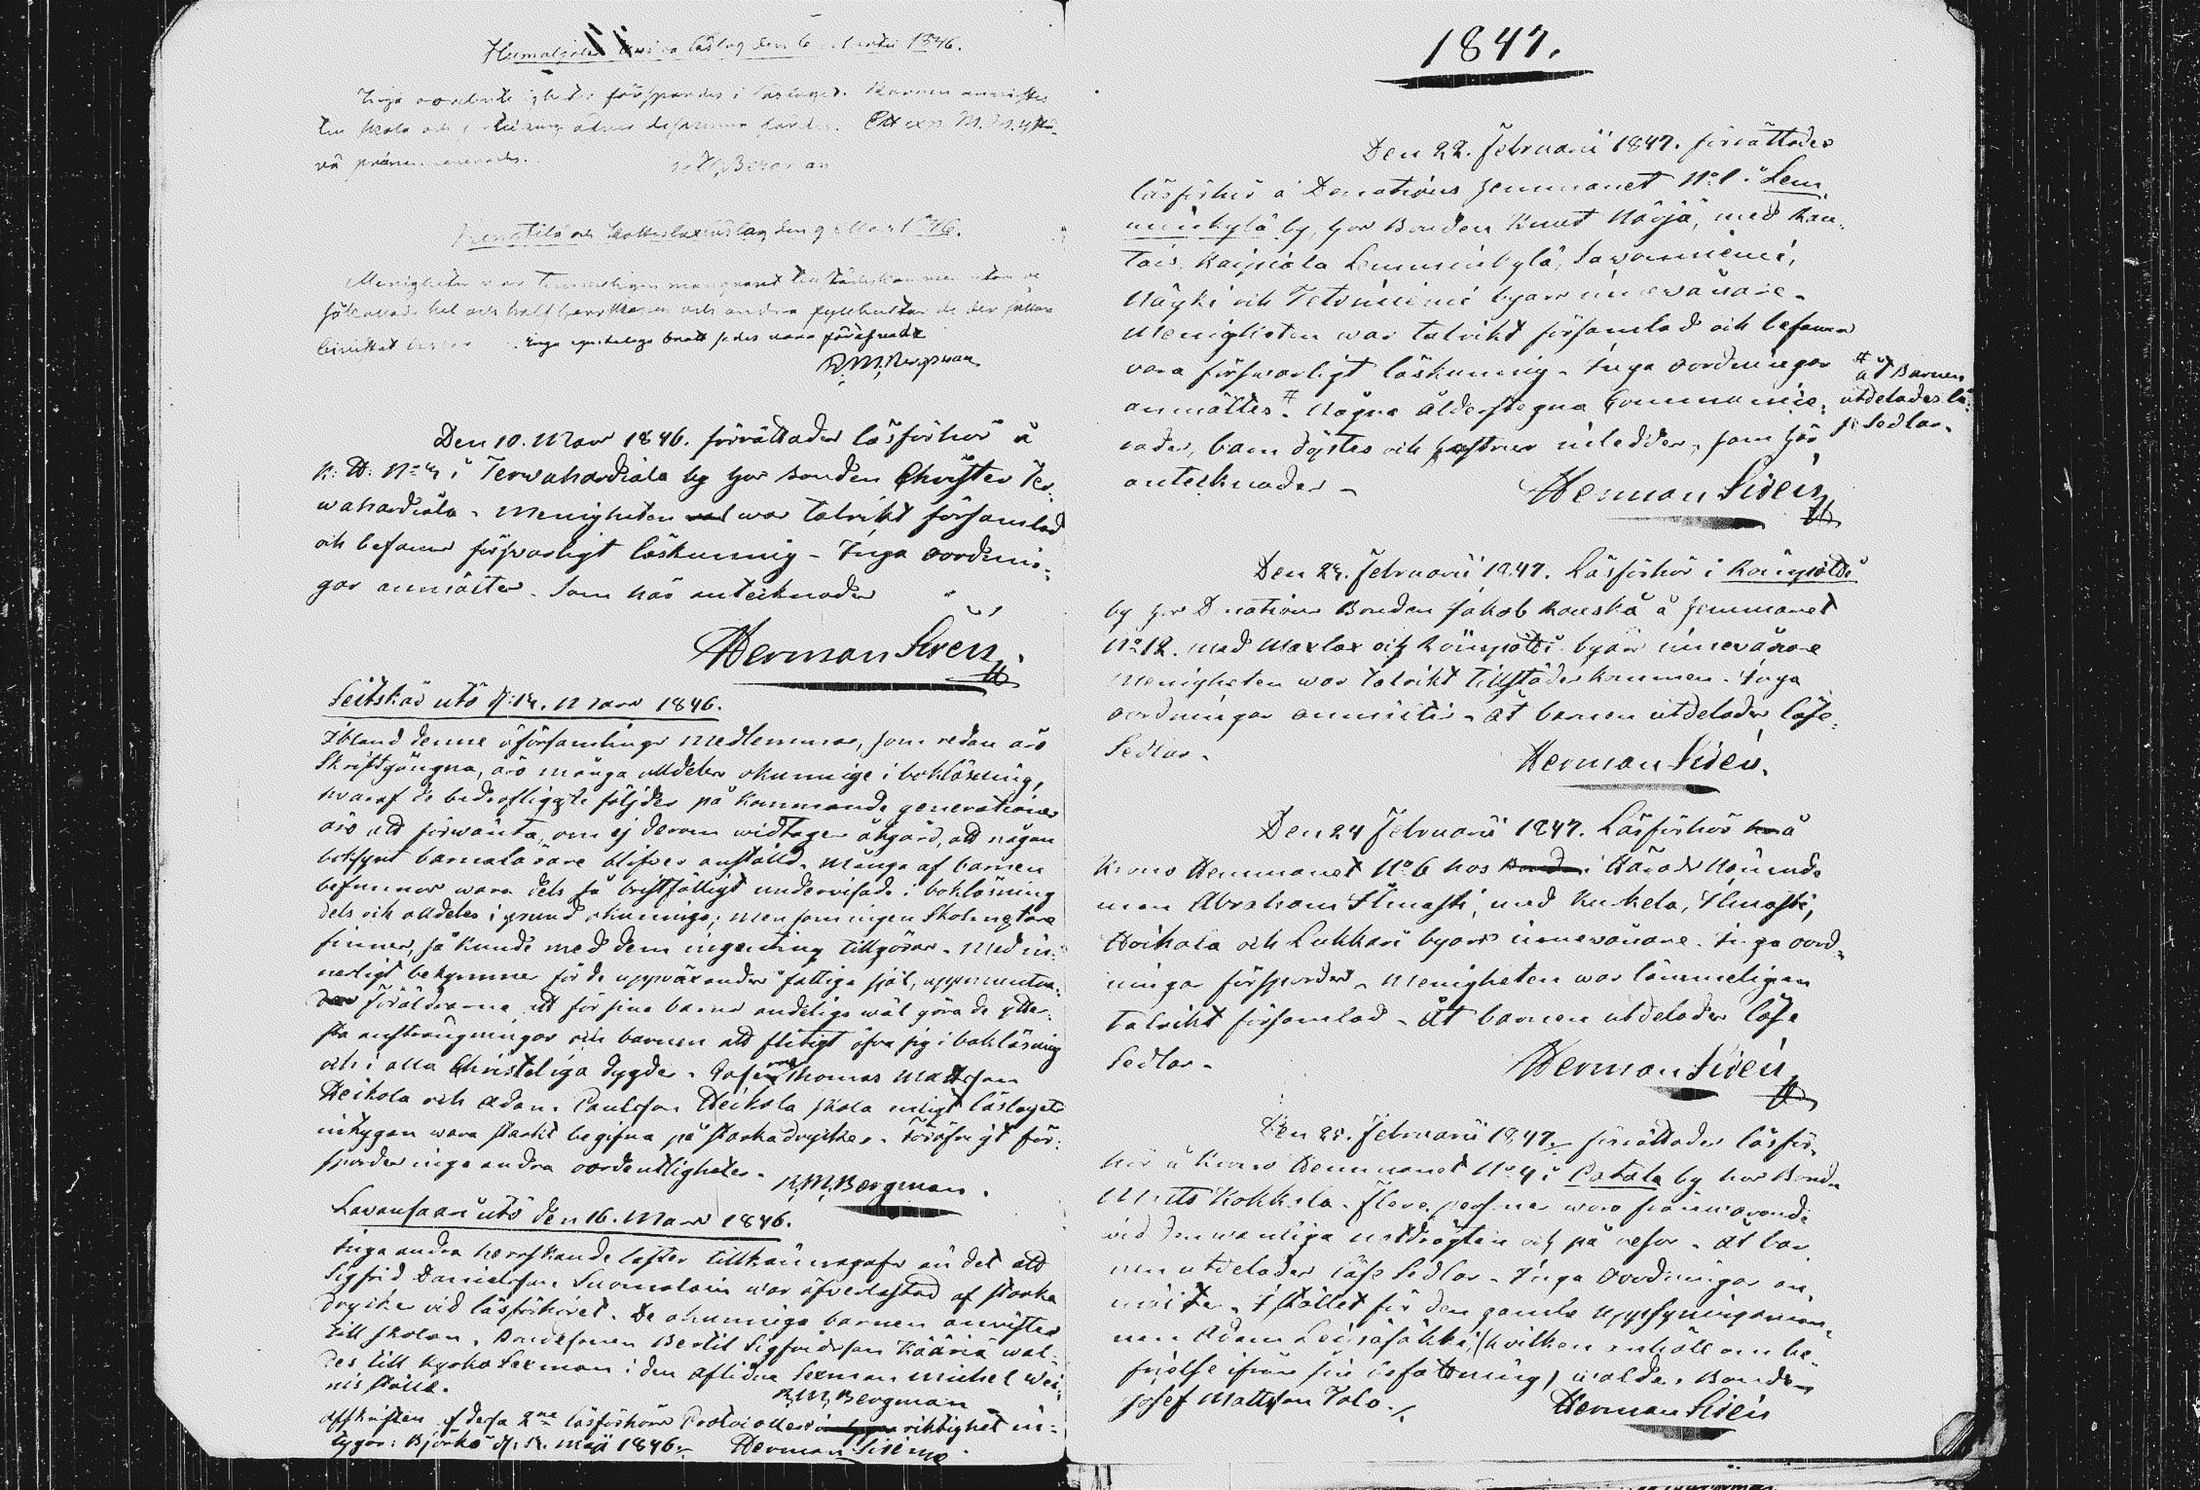 Humaljoki läslag den 6 Martii 1846.
Inga oordentligheter försportes i läslaget. Barnen anvistes
till skola och
R. M. Bergman
läslag den 9 Mars 1846.
Menigheten var temmeligen mangrant tillstädeskommen utom de
och andra
Inga
R. M. Bergman
Den 10. Mars 1846. förrättades läsförhör å
K: H: No 4 i Terwahardiala by hos bonden Christer Ter-
wahardiala - Menigheten war talrikt församlad
och befanns försvarligt läskunnig - Inga oordnin-
gar anmältes. Som här antecknades
Herman Sirén
Seitskär utö d: 12. Mars 1846.
Ibland denne öförsamlings medlemmar, som redan äro
Skriftgångna, äro många alldeles okunnige i bokläsning,
hvaraf de bedröfligaste följder på kommande generationer
äro att förwänta, om ej derom widtages åtgärd, att någon
bokfynt barnalärare blifver anställd. Många af barnen
befunnos wara dels så bristfälligt undervisade i bokläsning
dels och alldeles i grund okunniga; men som ingen Skolmästare
finnes, så kunde med dem ingenting tillgöras. Med in-
nerligt bekymmer för de uppväxandes fattiga själ, uppmuntra-
des Föräldrarne att för sina barns andeliga wäl göra de ytter-
sta ansträngningar och barnen att flitigt öfva sig i bokläsning
och i alla Christeliga dygder. Thomas Mattsson
Heikola och Adam Paulsson Heikola skola enligt läslagets
intygan wara starkt begifna på starka drycker. Föröfrigt för-
spordes inga andra oordentligheter.
R. M. Bergman.
Lavansaari utö den 16. Mars 1846.
Inga andra herrskande laster tillkännagafs än det att
Sigfrid Danielsson Suomalain war öfverlastad af starka
drycker vid läsförhöret. De okunniga barnen anvistes
till skolan. Bondesonen Bertil Sigfridsson Kääriä wal-
des till kyrko Sexman i den aflidne Sexman Michel Wei-
nis ställe.
R. M. Bergman
Afskriften af dessa 2ne läsförhörs Protocollers riktighet in-
tygar: Björkö d: 12. Maji 1846. Herman Sirén
1847.
Den 22. Februarii 1847. förrättades
läsförhör å Donations hemmanet No 1. i Lem
minkylä by, hos Bonden Knut Näyjä, med Kau-
tais, Kaijiala Lemminkylä, Sawonniemi,
Näyki och Tetriniemi byars innevånare.
Menigheten war talrikt församlad och befanns
vara försvarligt läskunnig. Inga oordningar
anmältes. # Någre ålderstegne communice-
rades, barn döptes och hustrur inleddes. Som här
antecknades -
# åt Barnen
utdelades lä-
se Sedlar.
Herman Sirén
Den 24. Februarii 1847. Läsförhör i Känpölä
by hos Donations Bonden Jakob Kauska å hemmanet
No 12. med Maxlax och byars innevånare
Menigheten war talrikt tillstädes kommen. Inga
oordningar anmältes - åt barnen utdelades läse-
Sedlar.
Herman Sirén.
Den 24 Februarii 1847. Läsförhör å
Krono Hemmanet No 6 hos Härads Nämnde
man Abraham Ilmasti, med Kurkela, Ilmasti,
Hoikala och Lukkari byars innevånare. Inga oord-
ningar förspordes. Menigheten war temmeligen
talrikt församlad - Åt barnen utdelades läse
Sedlar.
Herman Sirén
Den 25. Februarii 1847. förrättades läsför-
hör å Krono Hemmanet No 4 i Patala by hos Bonden
Matts Kokkola. Flere personer woro frånvarande
vid den wanliga notdrägten och på resor. Åt bar
nen utdelades läse Sedlar - Inga Oordningar an-
mälte. I stället för den gamle Uppsyningsman-
nen Adam (hvilken anhöll om be-
frielse ifrån sin befattning) waldes Bonden
Josef Mattsson Talo.
Herman Sirén